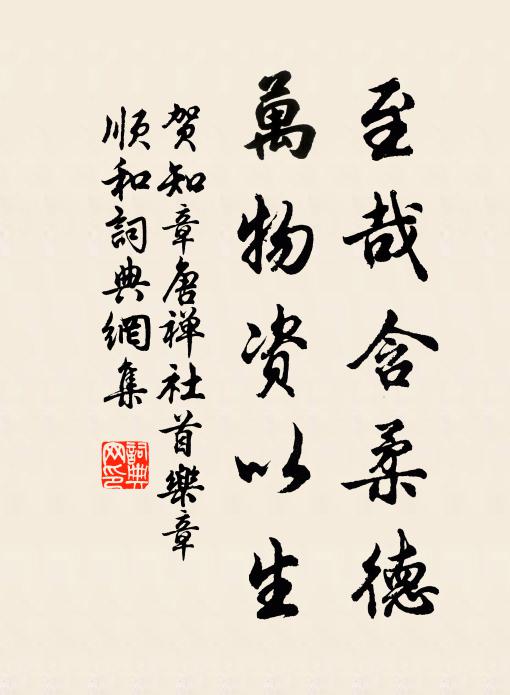 至哉含柔德
萬物资以生
贺知章唐禅社首樂章
顺和詞典網集
詞典
网印